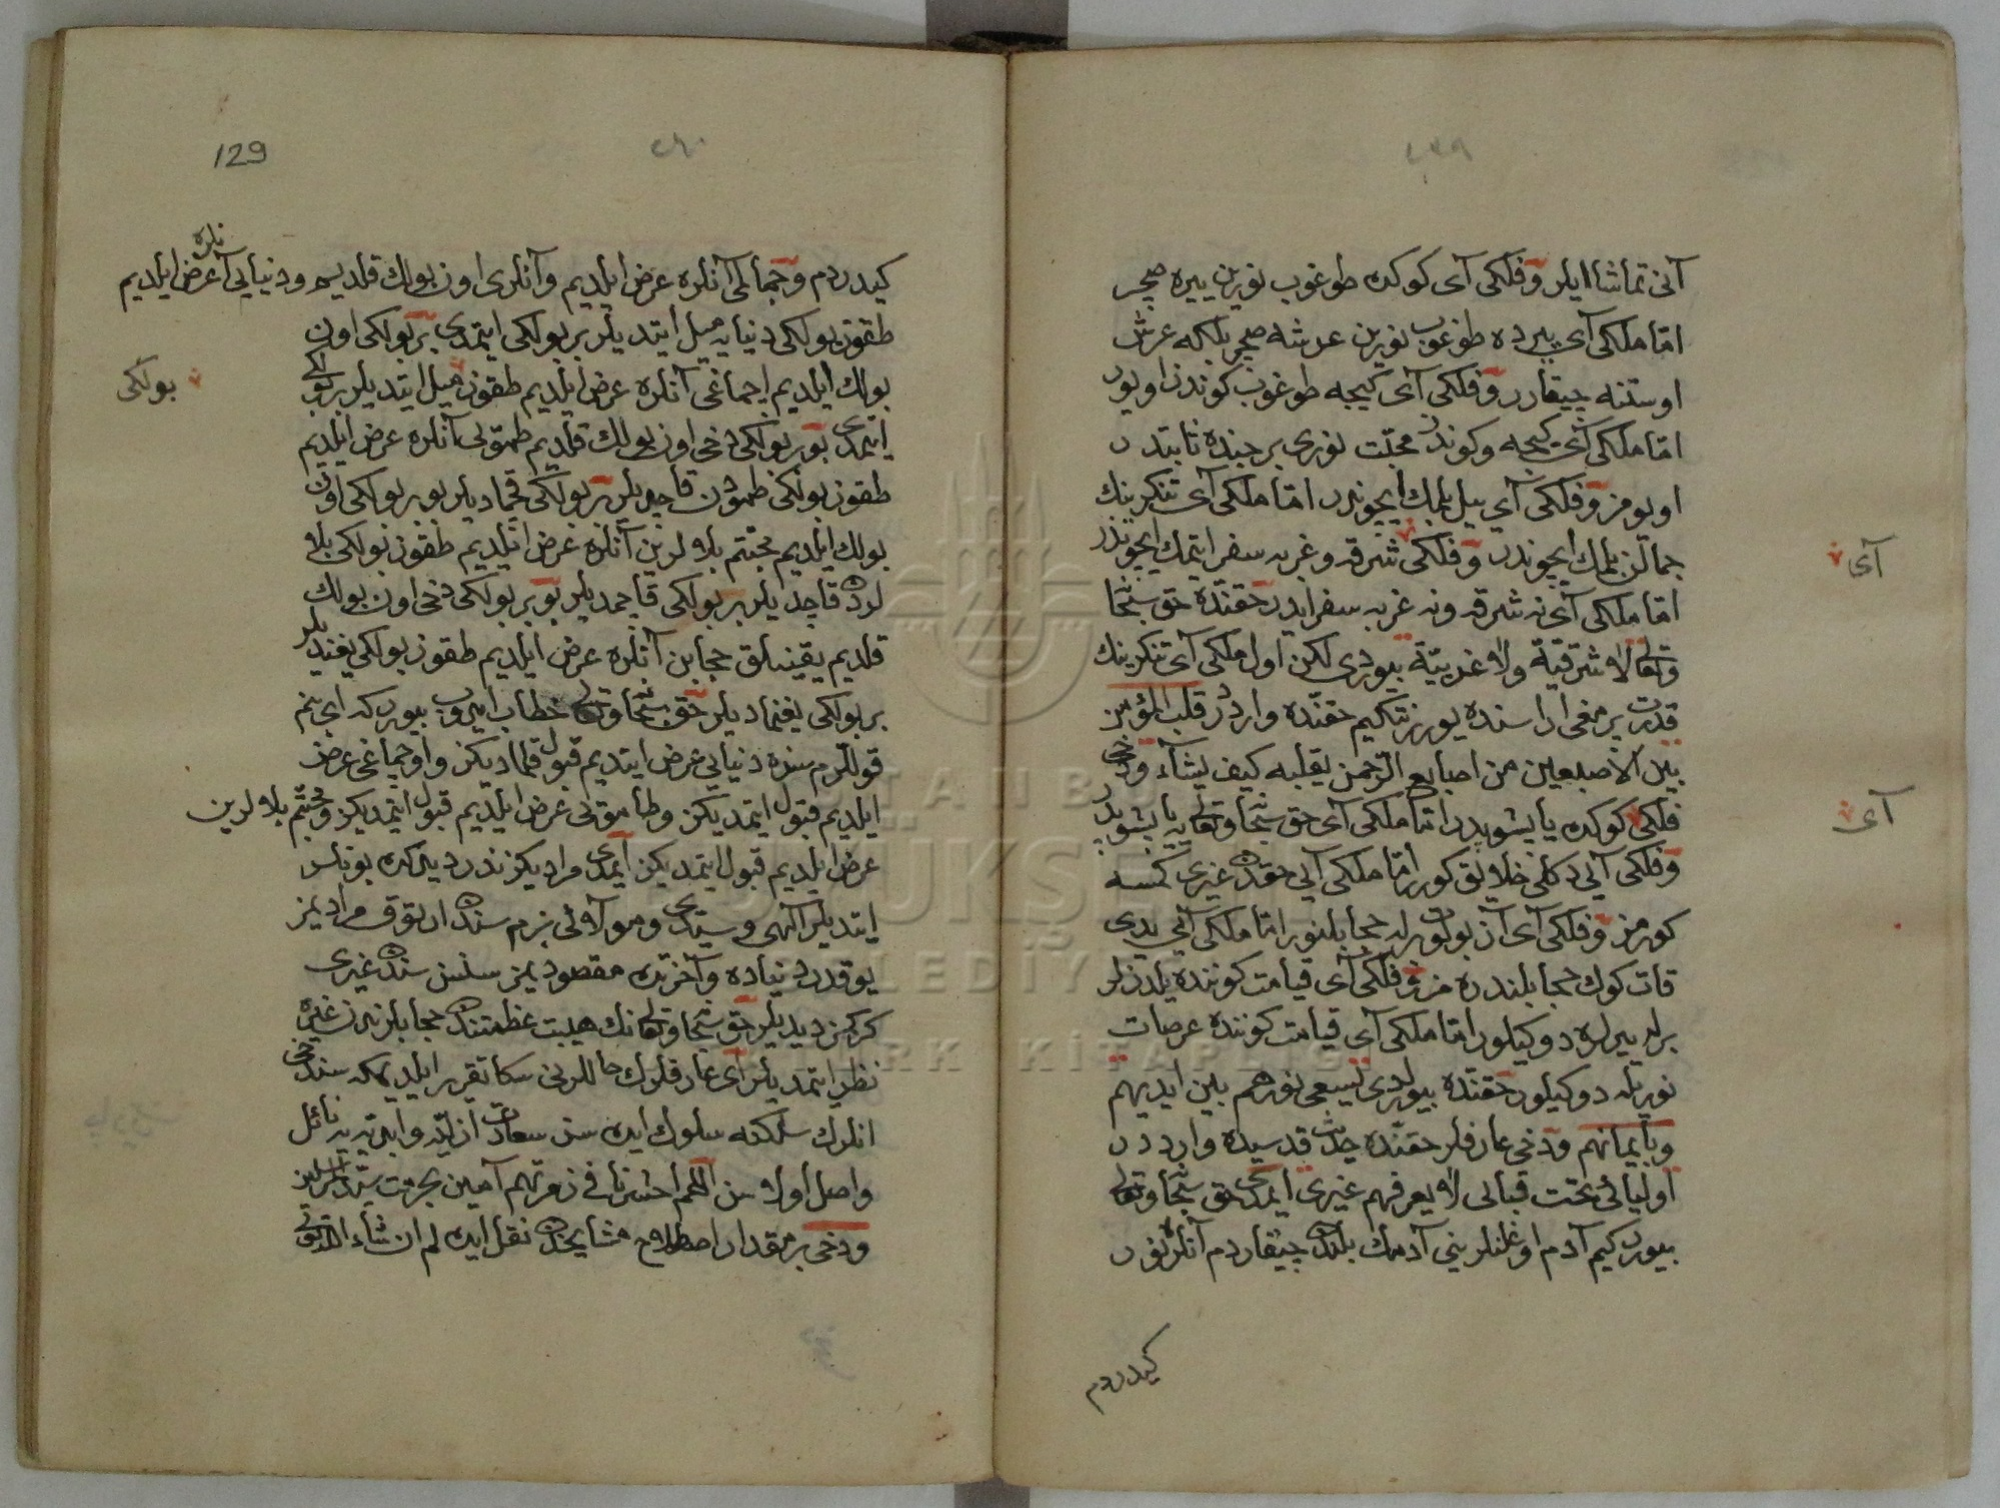 ٤٥٩
آنی تماشا ایلر وفلکی آی کوکده طوغوب نورین ییره صچر
امّا ملکی آی ییرده طوغوب نورین عرشه صچر بلکه عرش
اوستنه چیقارر وفلکی آی کیجه طوغوب کوندز اویور
امّا ملکی آی کیجه وکوندز محبّت نوری برجنده ثابتدر
اویومز وفلکی آی ییل بلمك ایچوندر امّا ملکی آی تنکرینك
جمالن بلمك ایچوندر وفلکی شرقه وغربه سفر ایتمك ایچوندر
آی
امّا ملکی آی نه شرقه ونه غربه سفر ایدر حقنده حق سبحا
وتعالی لا شرقیّة ولا غربیّة بیوردی لکن اول ملکی آی تنکرینك
قدرت برمغی اراسنده یورر نتکیم حقنده وارددر قلب المؤمن
بین الاصبعین من اصابع الرّحمن یقلبه کیف یشآء ودخی
فلکی کوکده یاپشوبدر امّا ملکی آی حق سبحا وتعالی یه یاپشوبدر
آی
وفلکی آیی دکلی خلایق کورر امّا ملکی آیی حقدن غیری کمسه
کورمز وفلکی آی آز بولوتلرله حجابلنور امّا ملکی آیی یدی
قات کوك حجابلندره مز وفلکی آی قیامت کوننده یلدزلر
برله ییرلره دوکیلور امّا ملکی آی قیامت کوننده عرصات
نوریله دوکیلور حقنده بیوردی یسعی نورهم بین ایدیهم
وبأیمانهم ودخی عارفلر حقنده حدیث قدسیده وارددر
اولیائی تحت قبالی لا یعرفهم غیری ایمدی حق سبحا وتعالی
بیورر کیم آدم اوغلنلرینی آدمك بلندن چیقاردم آنلره نور
کیدردم
129
٤٦٠
کیدردم وجمالی آنلره عرض ایلدیم وآنلری اون بولك قلدیم ودنیایی آنلره عرض ایلدیم
طقوز بولکی دنیایه میل ایتدیلر بر بولکی ایتمدی بر بولکی اون
بولك ایلدیم اچماغی آنلره عرض ایلدیم طقوز بولکی میل ایتدیلر بر بولکی
ایتمدی بو بر بولکی دخی اون بولك قلدیم طموی آنلره عرض ایلدیم
طقوز بولکی طمودن قاچدیلر بر بولکی قچمادیلر بو بر بولکی اون
بولك ایلدیم محبّتم بلالرین آنلره عرض ایلدیم طقوز بولکی بلا
لردن قاچدیلر بر بولکی قاچمدیلر بو بر بولکی دخی اون بولك
قلدیم یقینلق حجابن آنلره عرض ایلدیم طقوز بولکی یغندیلر
بر بولکی یغنمادیلر حق سبحا وتعالی خطاب ایدوب بیوردکه ای بنم
قوللرم سزه دنیایی عرض ایتدیم قبول قلمادیکز واوچماغی عرض
ایلدیم قبول ایتمدیکز وطاموی عرض ایلدیم قبول ایتمدیکز ومحبّتم بلالرین
عرض ایلدیم قبول ایتمدیکز ایمدی مرادیکز ندر دییرکن بونلر
ایتدیلر الهی وسیّدی ومولائی بزم سندن ارتوق مرادیمز
یوقدر دنیاده وآخرتده مقصودیمز سنسن سندن غیری
کرکمز دیدیلر حق سبحا وتعالی نك هیبت عظمتندن حجابلرندن غیره
نظر ایتمدیلر ای عارفلرك حاللرنی سکا تقریر ایلدیمکه سندخی
انلرك سلکنه سلوك ایده سن سعادت ازلیّه وابدیّه یه نائل
واصل اولاسن اللّهم احشرنا فی زمرتهم آمین بحرمت سیّد المرسلین
ودخی بر مقدار اصطلاح مشایخدن نقل ایده لم ان شاء اللّه تعالی
بولکی